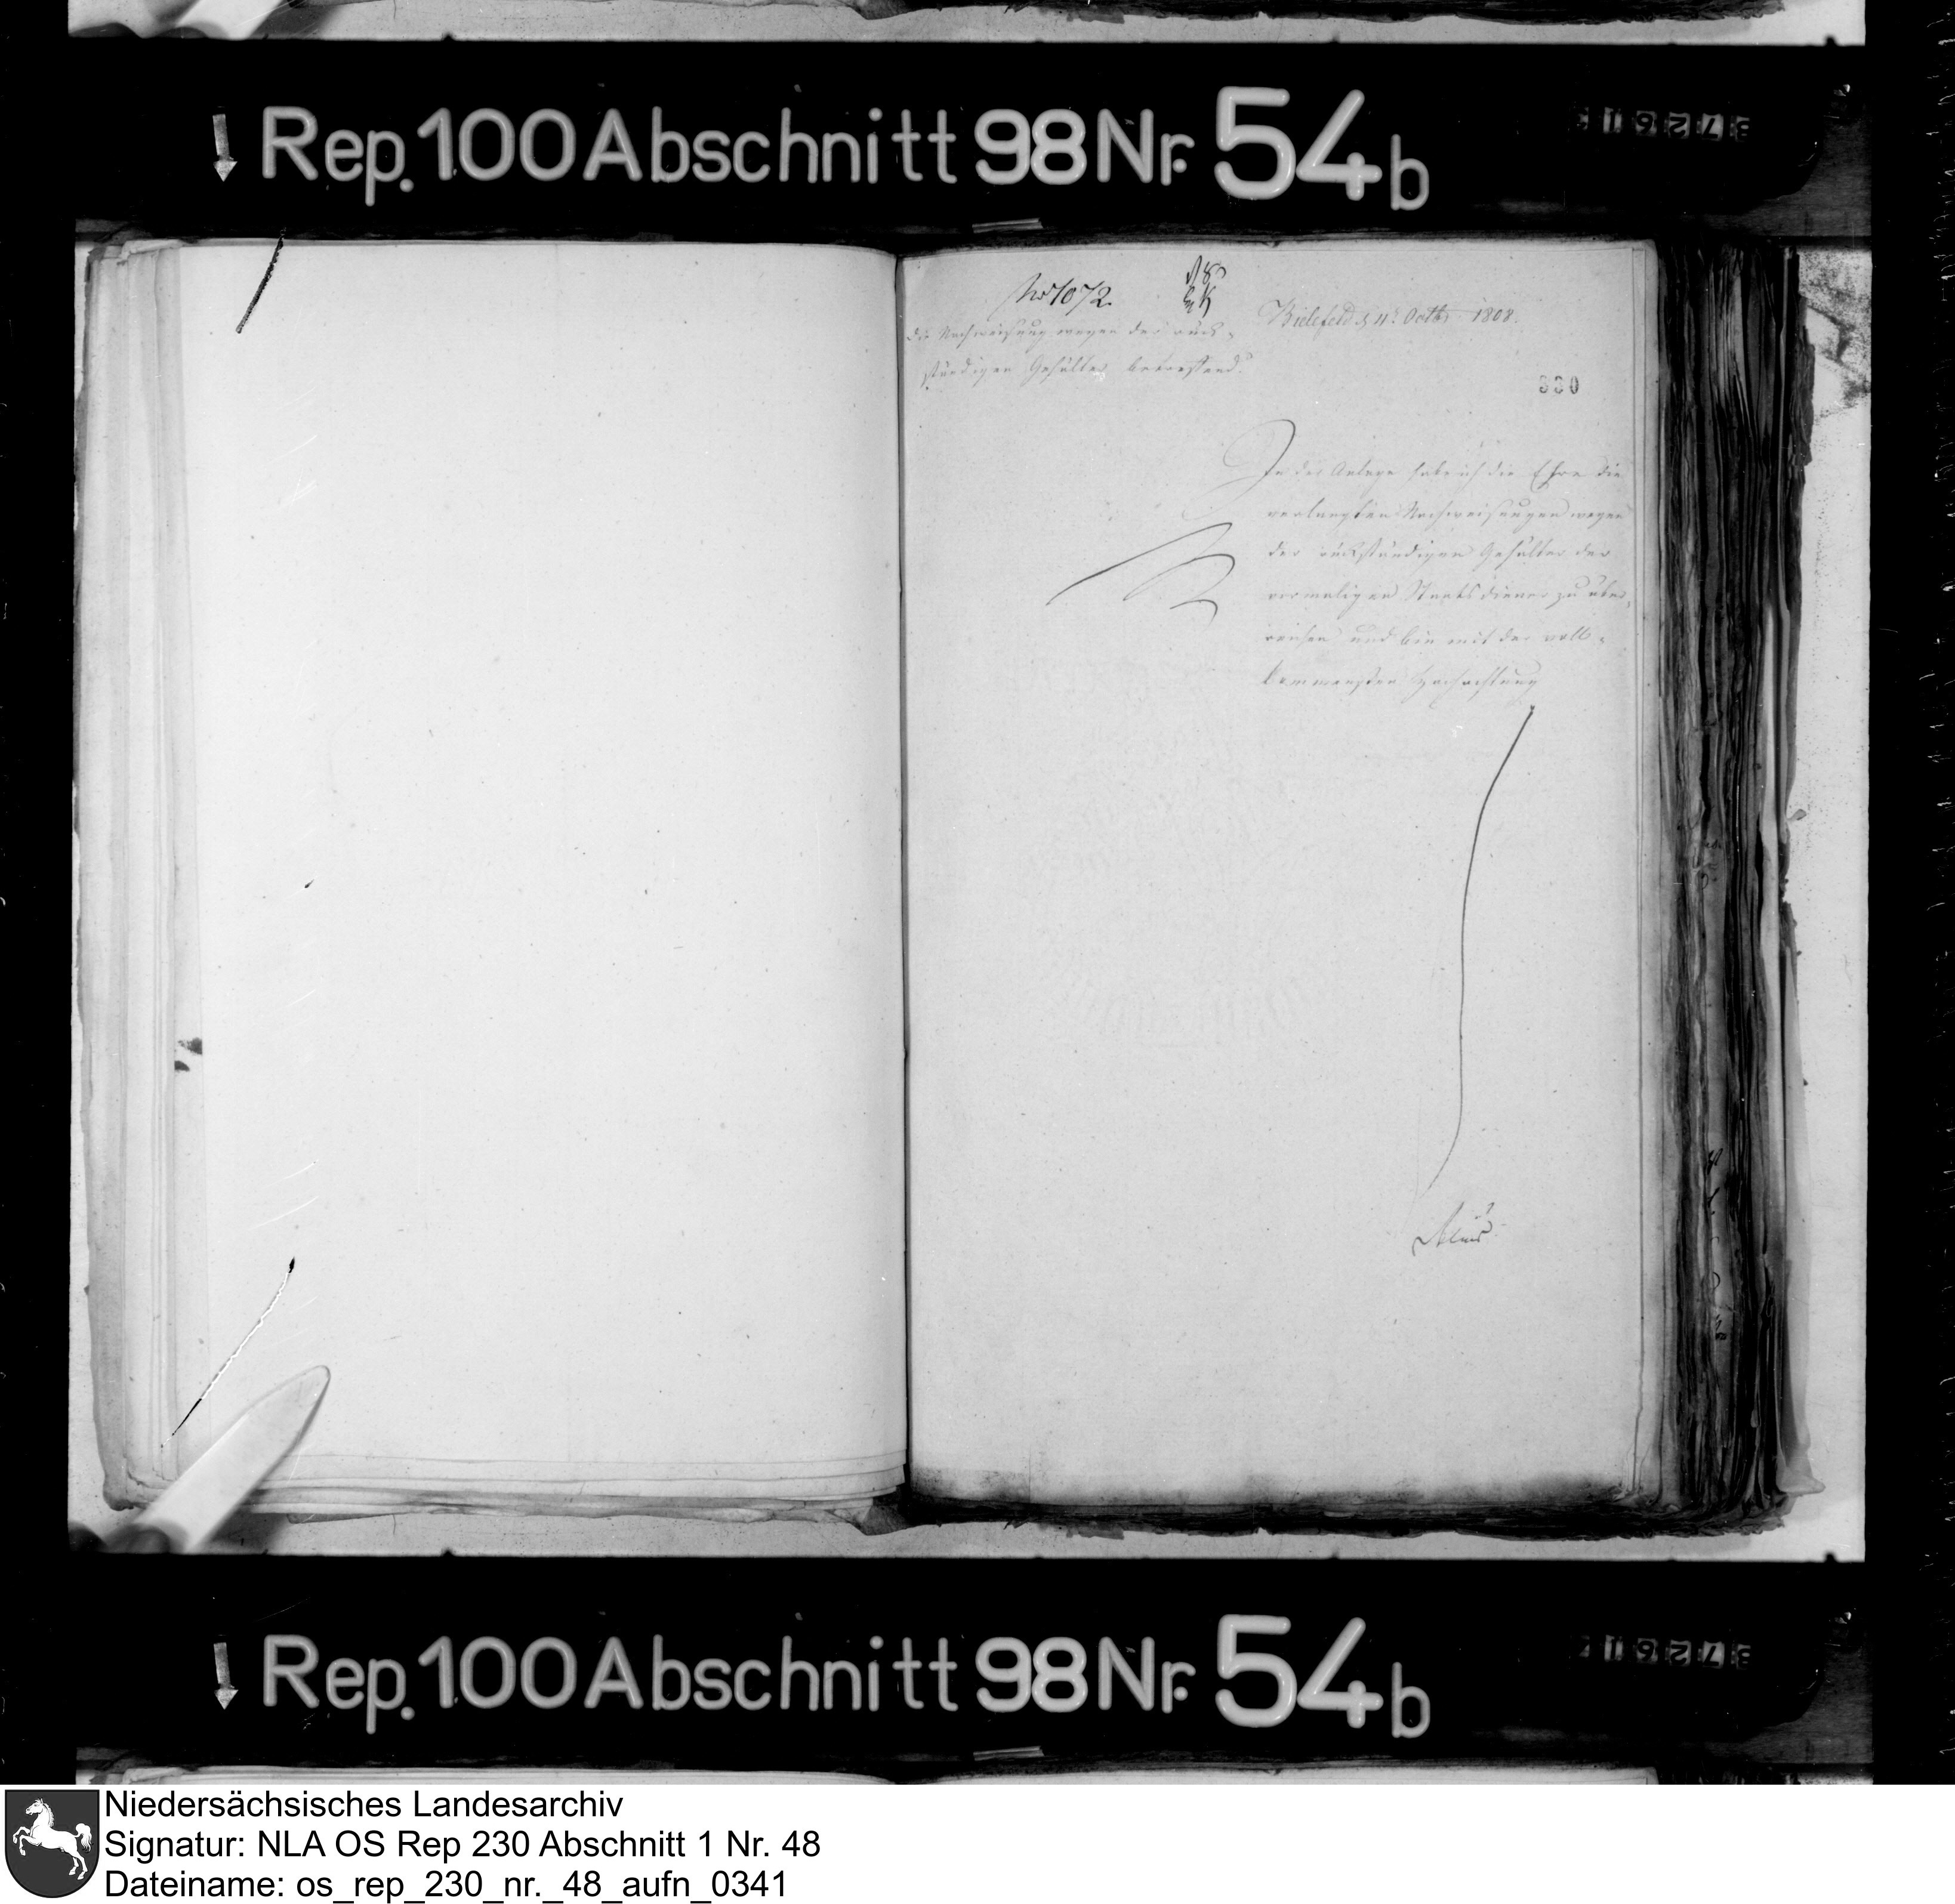 Rep. 100 Abschnitt 98 Nr. 54b
No 1072
Bielefeld d 11t Octbr 1808.
die Nachweisung wegen der rück-
ständigen Gehälter betreffend.
330
In der Anlage habe ich die Ehre die
verlangten Nachweisungen wegen
der rückständigen Gehälter der
vormaligen Staatsdiener zu über-
reichen und bin mit der voll-
kommensten Hochachtung
Rep. 100 Abschnitt 98 Nr. 54b
Niedersächsisches Landesarchiv
Signatur: NLA OS Rep 230 Abschnitt 1 Nr. 48
Dateiname: os_rep_230_nr._48_aufn_0341